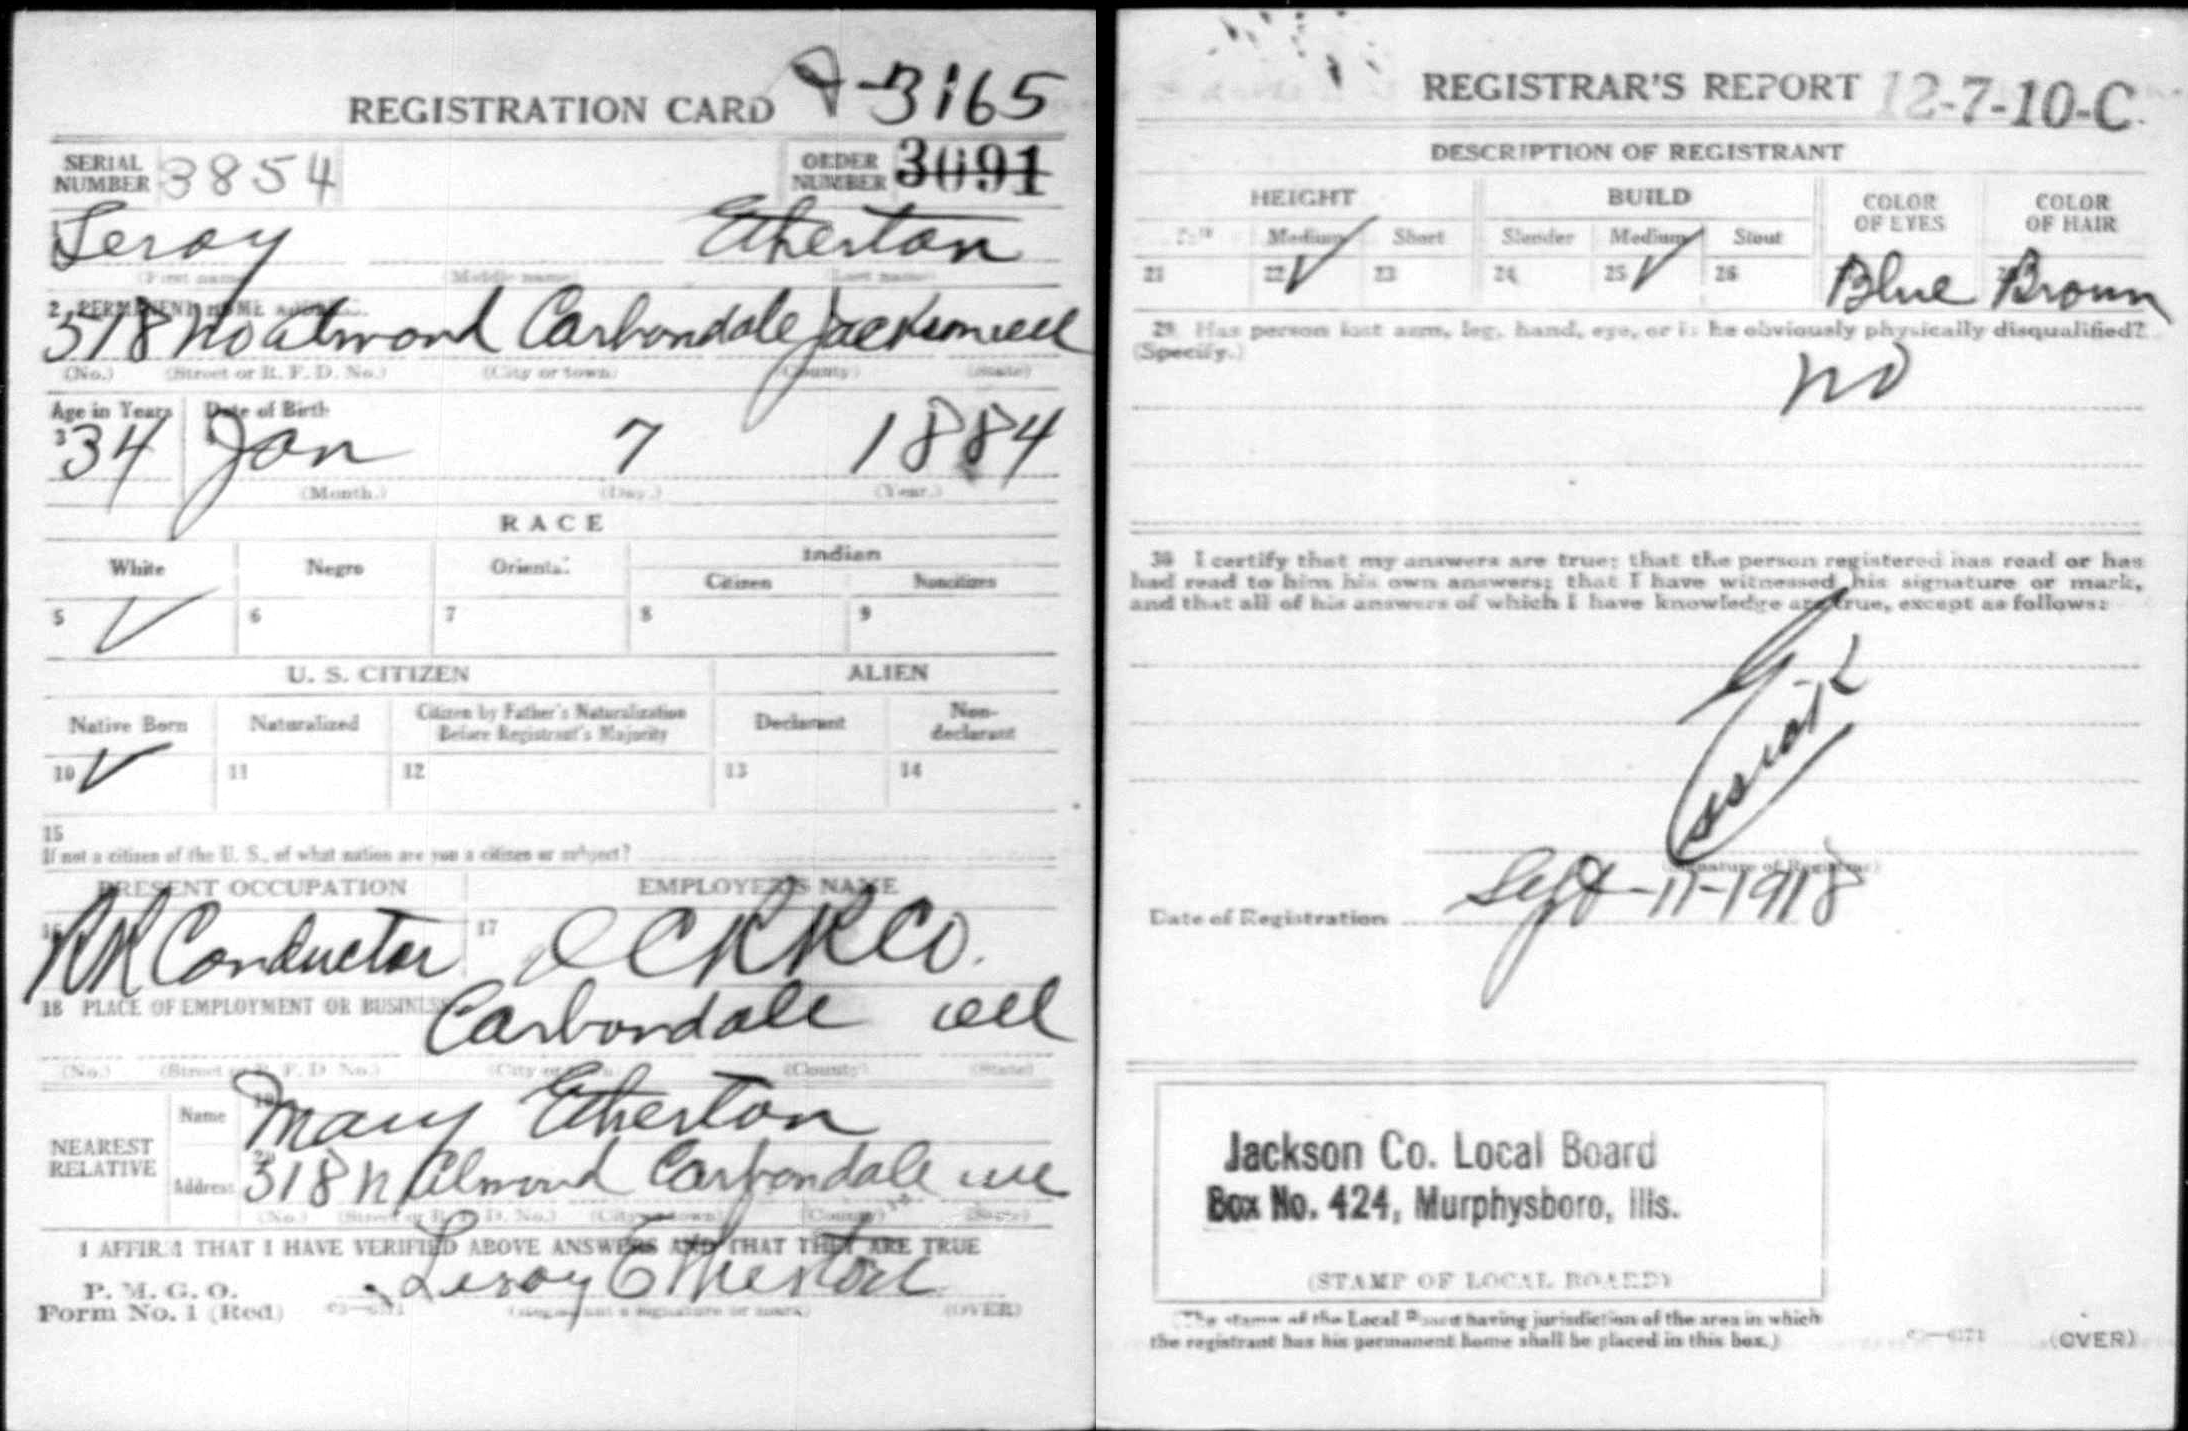 REGISTRATION CARD
3165
SERIAL NUMBER 3854
ORDER NUMBER 3091
Leroy Etherton
(First name) (Middle name) (Last name)
2 PERMANENT HOME ADDRESS
518 No Almond Carbondale Jackson Ill
(No.) (Street or R. F. D. No.) (City or town) (County) (State)
Age in Years Date of Birth
3 34 Jan 7 1884
(Month.) (Day.) (Year.)
RACE
White Negro Oriental Indian
Citizen Noncitizen
5 ✓ 6 7 8 9
U. S. CITIZEN ALIEN
Native Born Naturalized Citizen by Father's Naturalization Before Registrant's Majority Declarant Non-declarant
10 ✓ 11 12 13 14
15
If not a citizen of the U. S., of what nation are you a citizen or subject?
PRESENT OCCUPATION EMPLOYER'S NAME
16 RR Conductor 17 I C RR Co.
18 PLACE OF EMPLOYMENT OR BUSINESS
Carbondale Ill
(No.) (Street or R. F. D. No.) (City or town) (County) (State)
NEAREST RELATIVE
Name 19 Mary Etherton
Address 20 318 N Almond Carbondale Ill
(No.) (Street or R. F. D. No.) (City or town) (County) (State)
I AFFIRM THAT I HAVE VERIFIED ABOVE ANSWERS AND THAT THEY ARE TRUE
P. M. G. O.
Form No. 1 (Red)
Leroy Etherton
(Registrant's signature or mark) (OVER)
REGISTRAR'S REPORT 12-7-10-C
DESCRIPTION OF REGISTRANT
HEIGHT BUILD COLOR OF EYES COLOR OF HAIR
Tall Medium Short Slender Medium Stout
21 22 ✓ 23 24 25 ✓ 26 Blue Brown
29 Has person lost arm, leg, hand, eye, or is he obviously physically disqualified?
(Specify.)
no
30 I certify that my answers are true; that the person registered has read or has
had read to him his own answers; that I have witnessed his signature or mark,
and that all of his answers of which I have knowledge are true, except as follows:
(Signature of Registrar)
Date of Registration Sept-11-1918
Jackson Co. Local Board
Box No. 424, Murphysboro, Ills.
(STAMP OF LOCAL BOARD)
(The stamp of the Local Board having jurisdiction of the area in which
the registrant has his permanent home shall be placed in this box.)
(OVER)